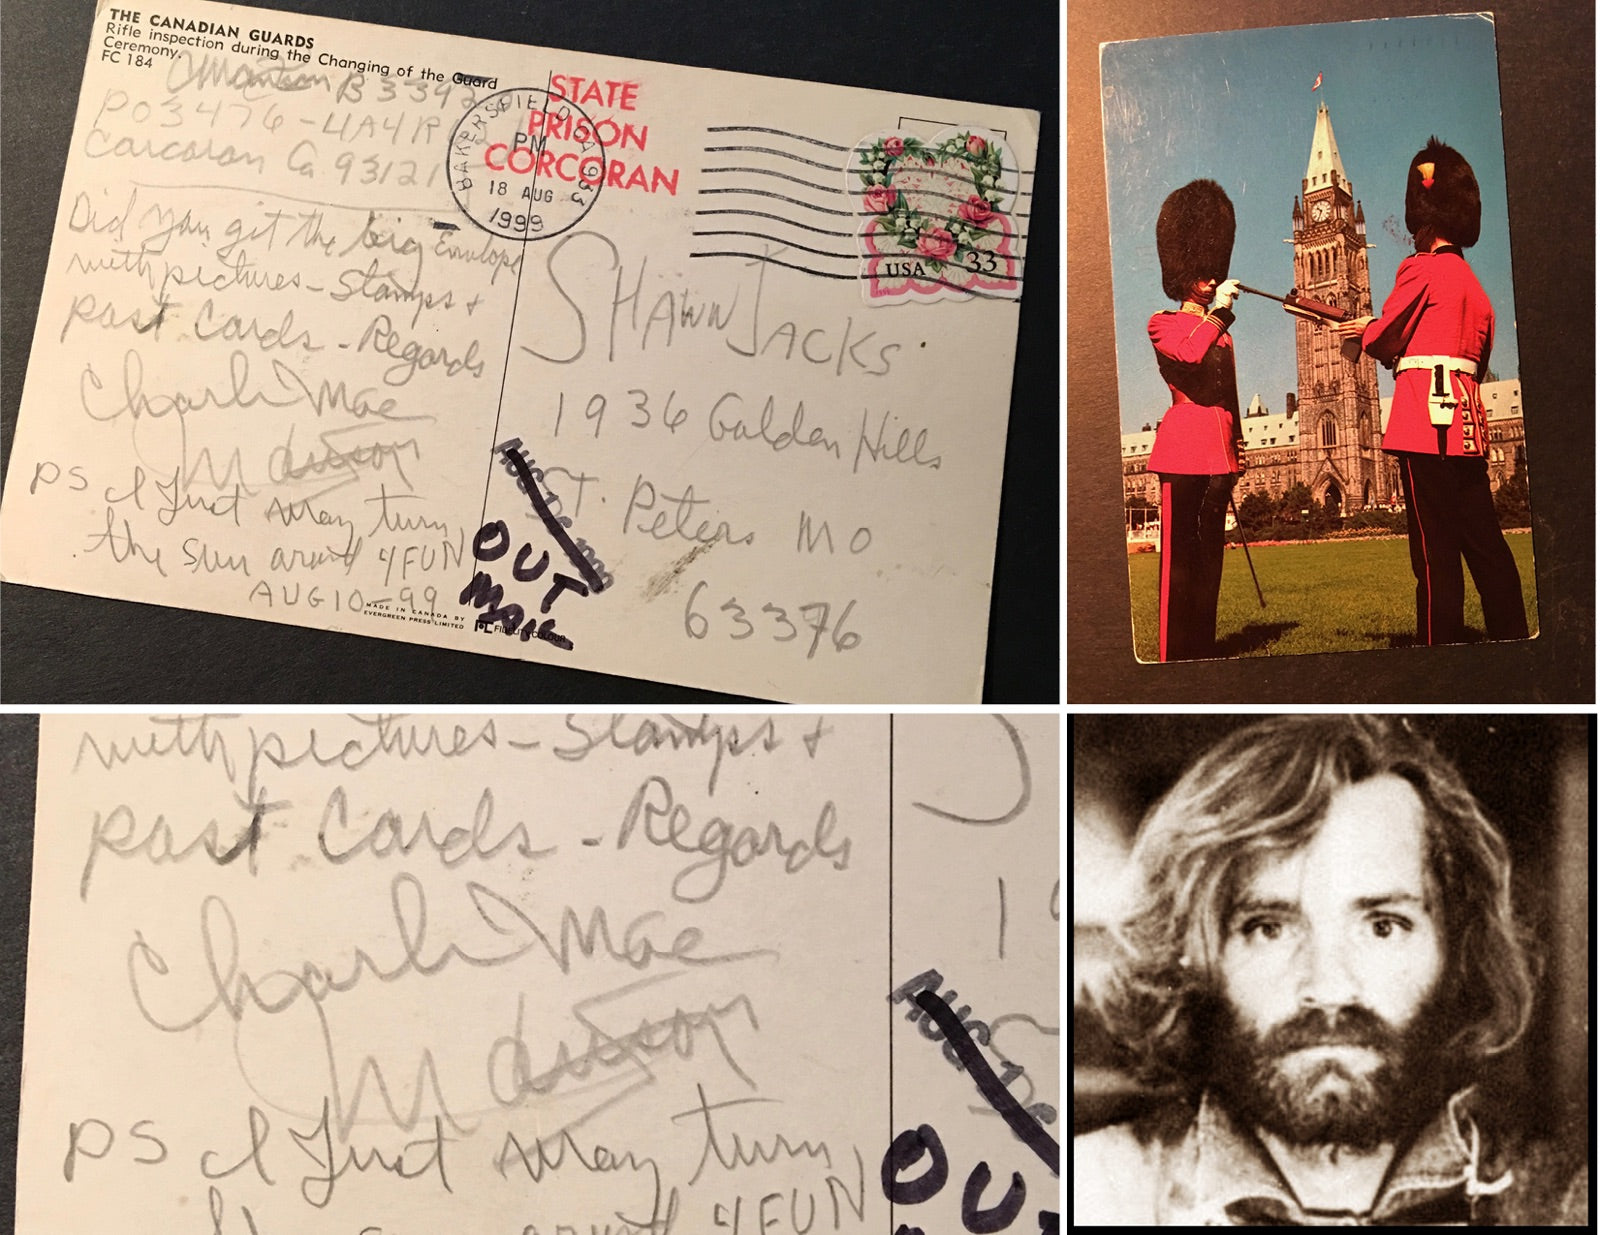 THE CANADIAN GUARDS
Rifle inspection during the Changing of the Guard
Ceremony.
FC 184
CManson B33920
PO3476-4A4R
Corcoran Ca. 93121
Did you git the big Envelope
with pictures - Stamps +
past Cards - Regards
Charli Mae
Manson
PS I Just may turn
the sun around 4 FUN
AUG 10-99
MADE IN CANADA BY
EVERGREEN PRESS LIMITED
STATE
PRISON
CORCORAN
BAKERSFIELD CA 933
PM
18 AUG
1999
USA 33
SHAWN JACKS
1936 Golden Hills
ST. Peters MO
63376
OUT
MAIL
with pictures - Stamps +
past Cards - Regards
Charli Mae
Manson
PS I Just may turn
4 FUN
OU